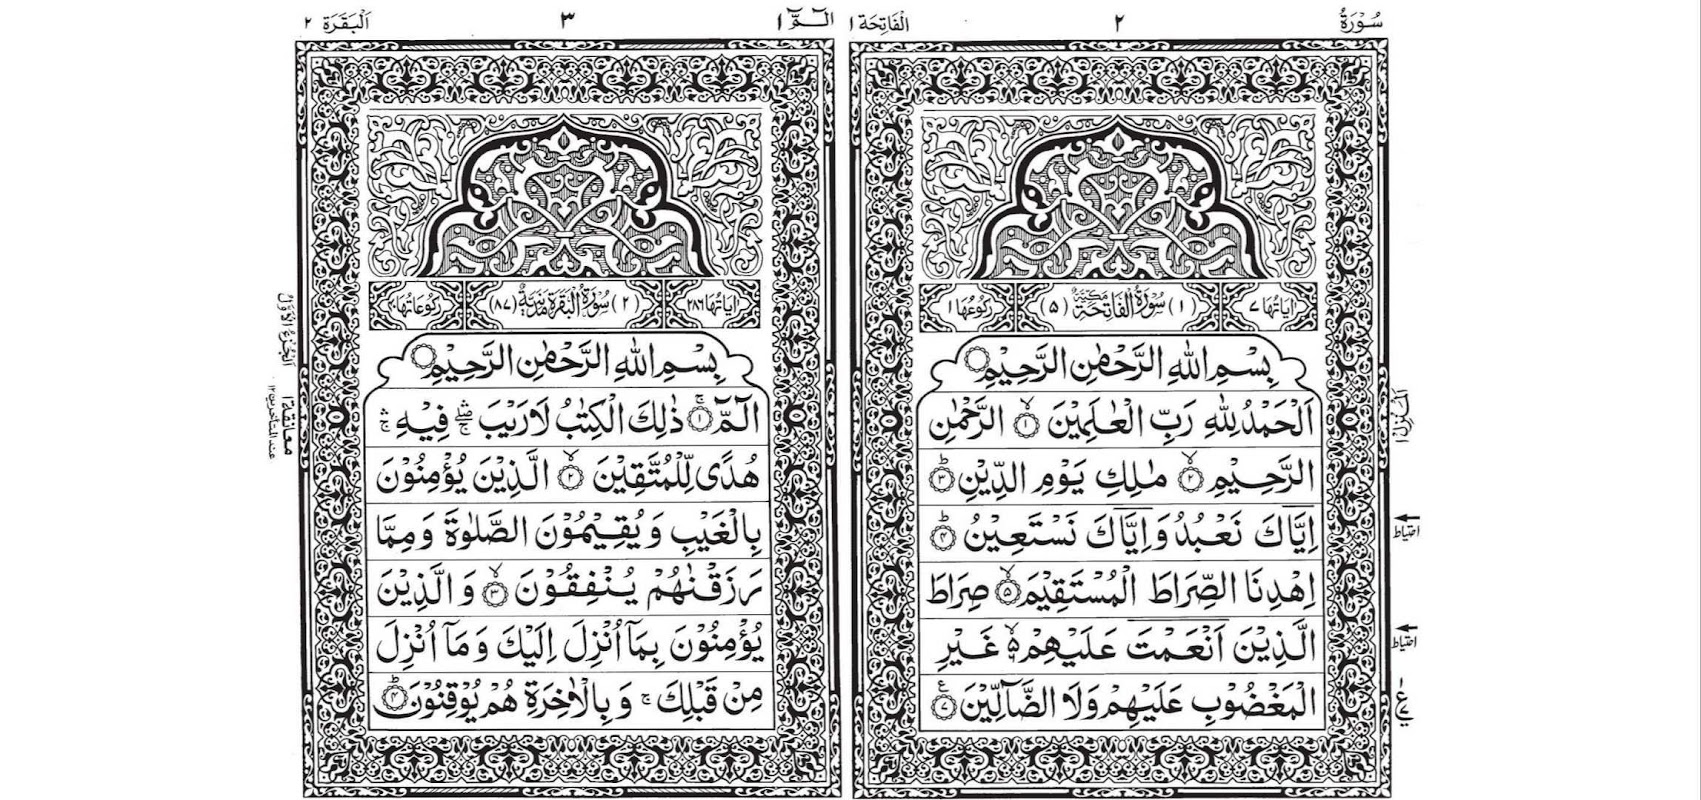 سُوْرَةُ ٢ اَلْفَاتِحَة ١
اٰيَاتُهَا ٧ (١) سُوْرَةُ الْفَاتِحَةِ مَكِّيَّةٌ (٥) رُكُوْعُهَا ١
بِسْمِ اللّٰهِ الرَّحْمٰنِ الرَّحِيْمِ
اَلْحَمْدُ لِلّٰهِ رَبِّ الْعٰلَمِيْنَ ۙ﴿١﴾ الرَّحْمٰنِ
الرَّحِيْمِ ۙ﴿٢﴾ مٰلِكِ يَوْمِ الدِّيْنِ ؕ﴿٣﴾
اِيَّاكَ نَعْبُدُ وَاِيَّاكَ نَسْتَعِيْنُ ؕ﴿٤﴾
اِهْدِنَا الصِّرَاطَ الْمُسْتَقِيْمَ ۙ﴿٥﴾ صِرَاطَ
الَّذِيْنَ اَنْعَمْتَ عَلَيْهِمْ ۙ۬ غَيْرِ
الْمَغْضُوْبِ عَلَيْهِمْ وَلَا الضَّآلِّيْنَ ﴿٧﴾
اَلْمَنْزِل ١
احتیاط
احتیاط
الٓمّٓ ١ ٣ اَلْبَقَرَة ٢
اٰيَاتُهَا ٢٨٦ (٢) سُوْرَةُ الْبَقَرَةِ مَدَنِيَّةٌ (٨٧) رُكُوْعَاتُهَا ٤٠
بِسْمِ اللّٰهِ الرَّحْمٰنِ الرَّحِيْمِ
الٓمّٓ ۚ﴿١﴾ ذٰلِكَ الْكِتٰبُ لَا رَيْبَ ۛۖۚ فِيْهِ ۛۚ
هُدًى لِّلْمُتَّقِيْنَ ۙ﴿٢﴾ الَّذِيْنَ يُؤْمِنُوْنَ
بِالْغَيْبِ وَيُقِيْمُوْنَ الصَّلٰوةَ وَمِمَّا
رَزَقْنٰهُمْ يُنْفِقُوْنَ ۙ﴿٣﴾ وَالَّذِيْنَ
يُؤْمِنُوْنَ بِمَآ اُنْزِلَ اِلَيْكَ وَمَآ اُنْزِلَ
مِنْ قَبْلِكَ ۚ وَبِالْاٰخِرَةِ هُمْ يُوْقِنُوْنَ ؕ﴿٤﴾
اَلْجُزْءُ الْاَوَّلُ
معانقة ١
عند المتأخرین ١٢